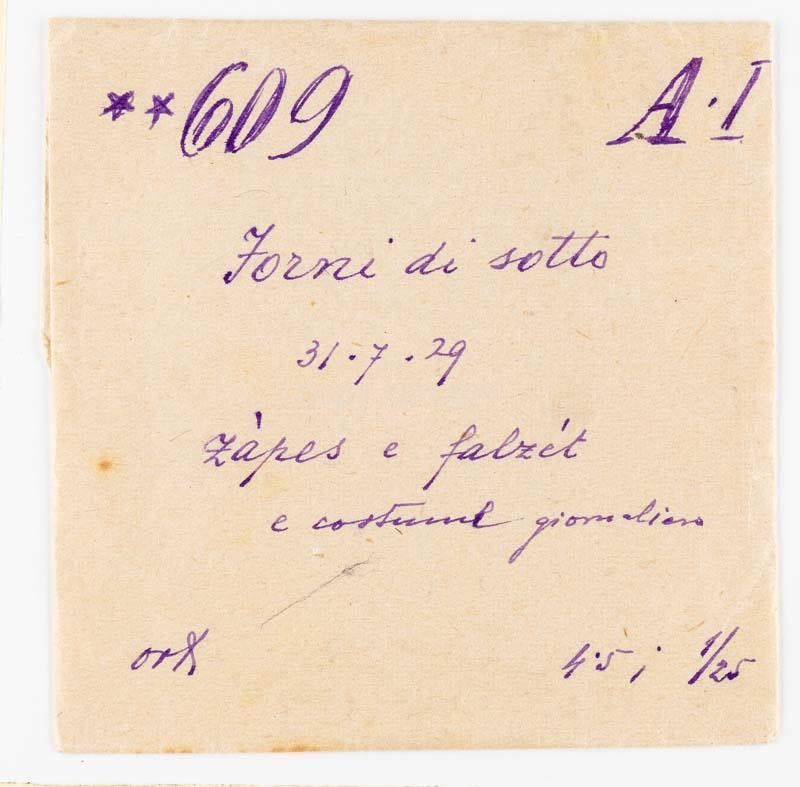 **609 A·I
Forni di sotto
31·7·29
zàpes e falzét
e costume giornaliero
orth
4·5 ; 1/25